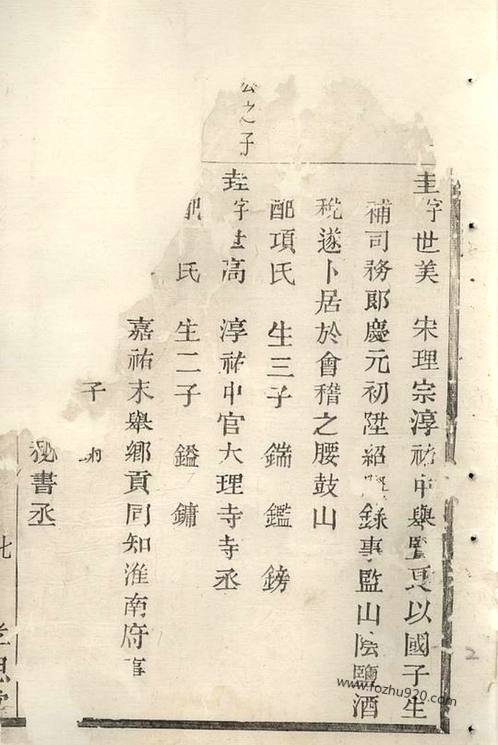 圭字世美　宋理宗淳祐中舉賢良以國子生
補司務郎慶元初陞紹興錄事監山陰鹽酒
稅遂卜居於會稽之腰鼓山
配項氏　生三子　鍴　鑑　鎊
公之子
垚字世高　淳祐中官大理寺寺丞
配　氏　生二子　鎰　鏞
嘉祐末舉鄉貢同知淮南府事
子
秘書丞
七
2
www.fozhu920.com